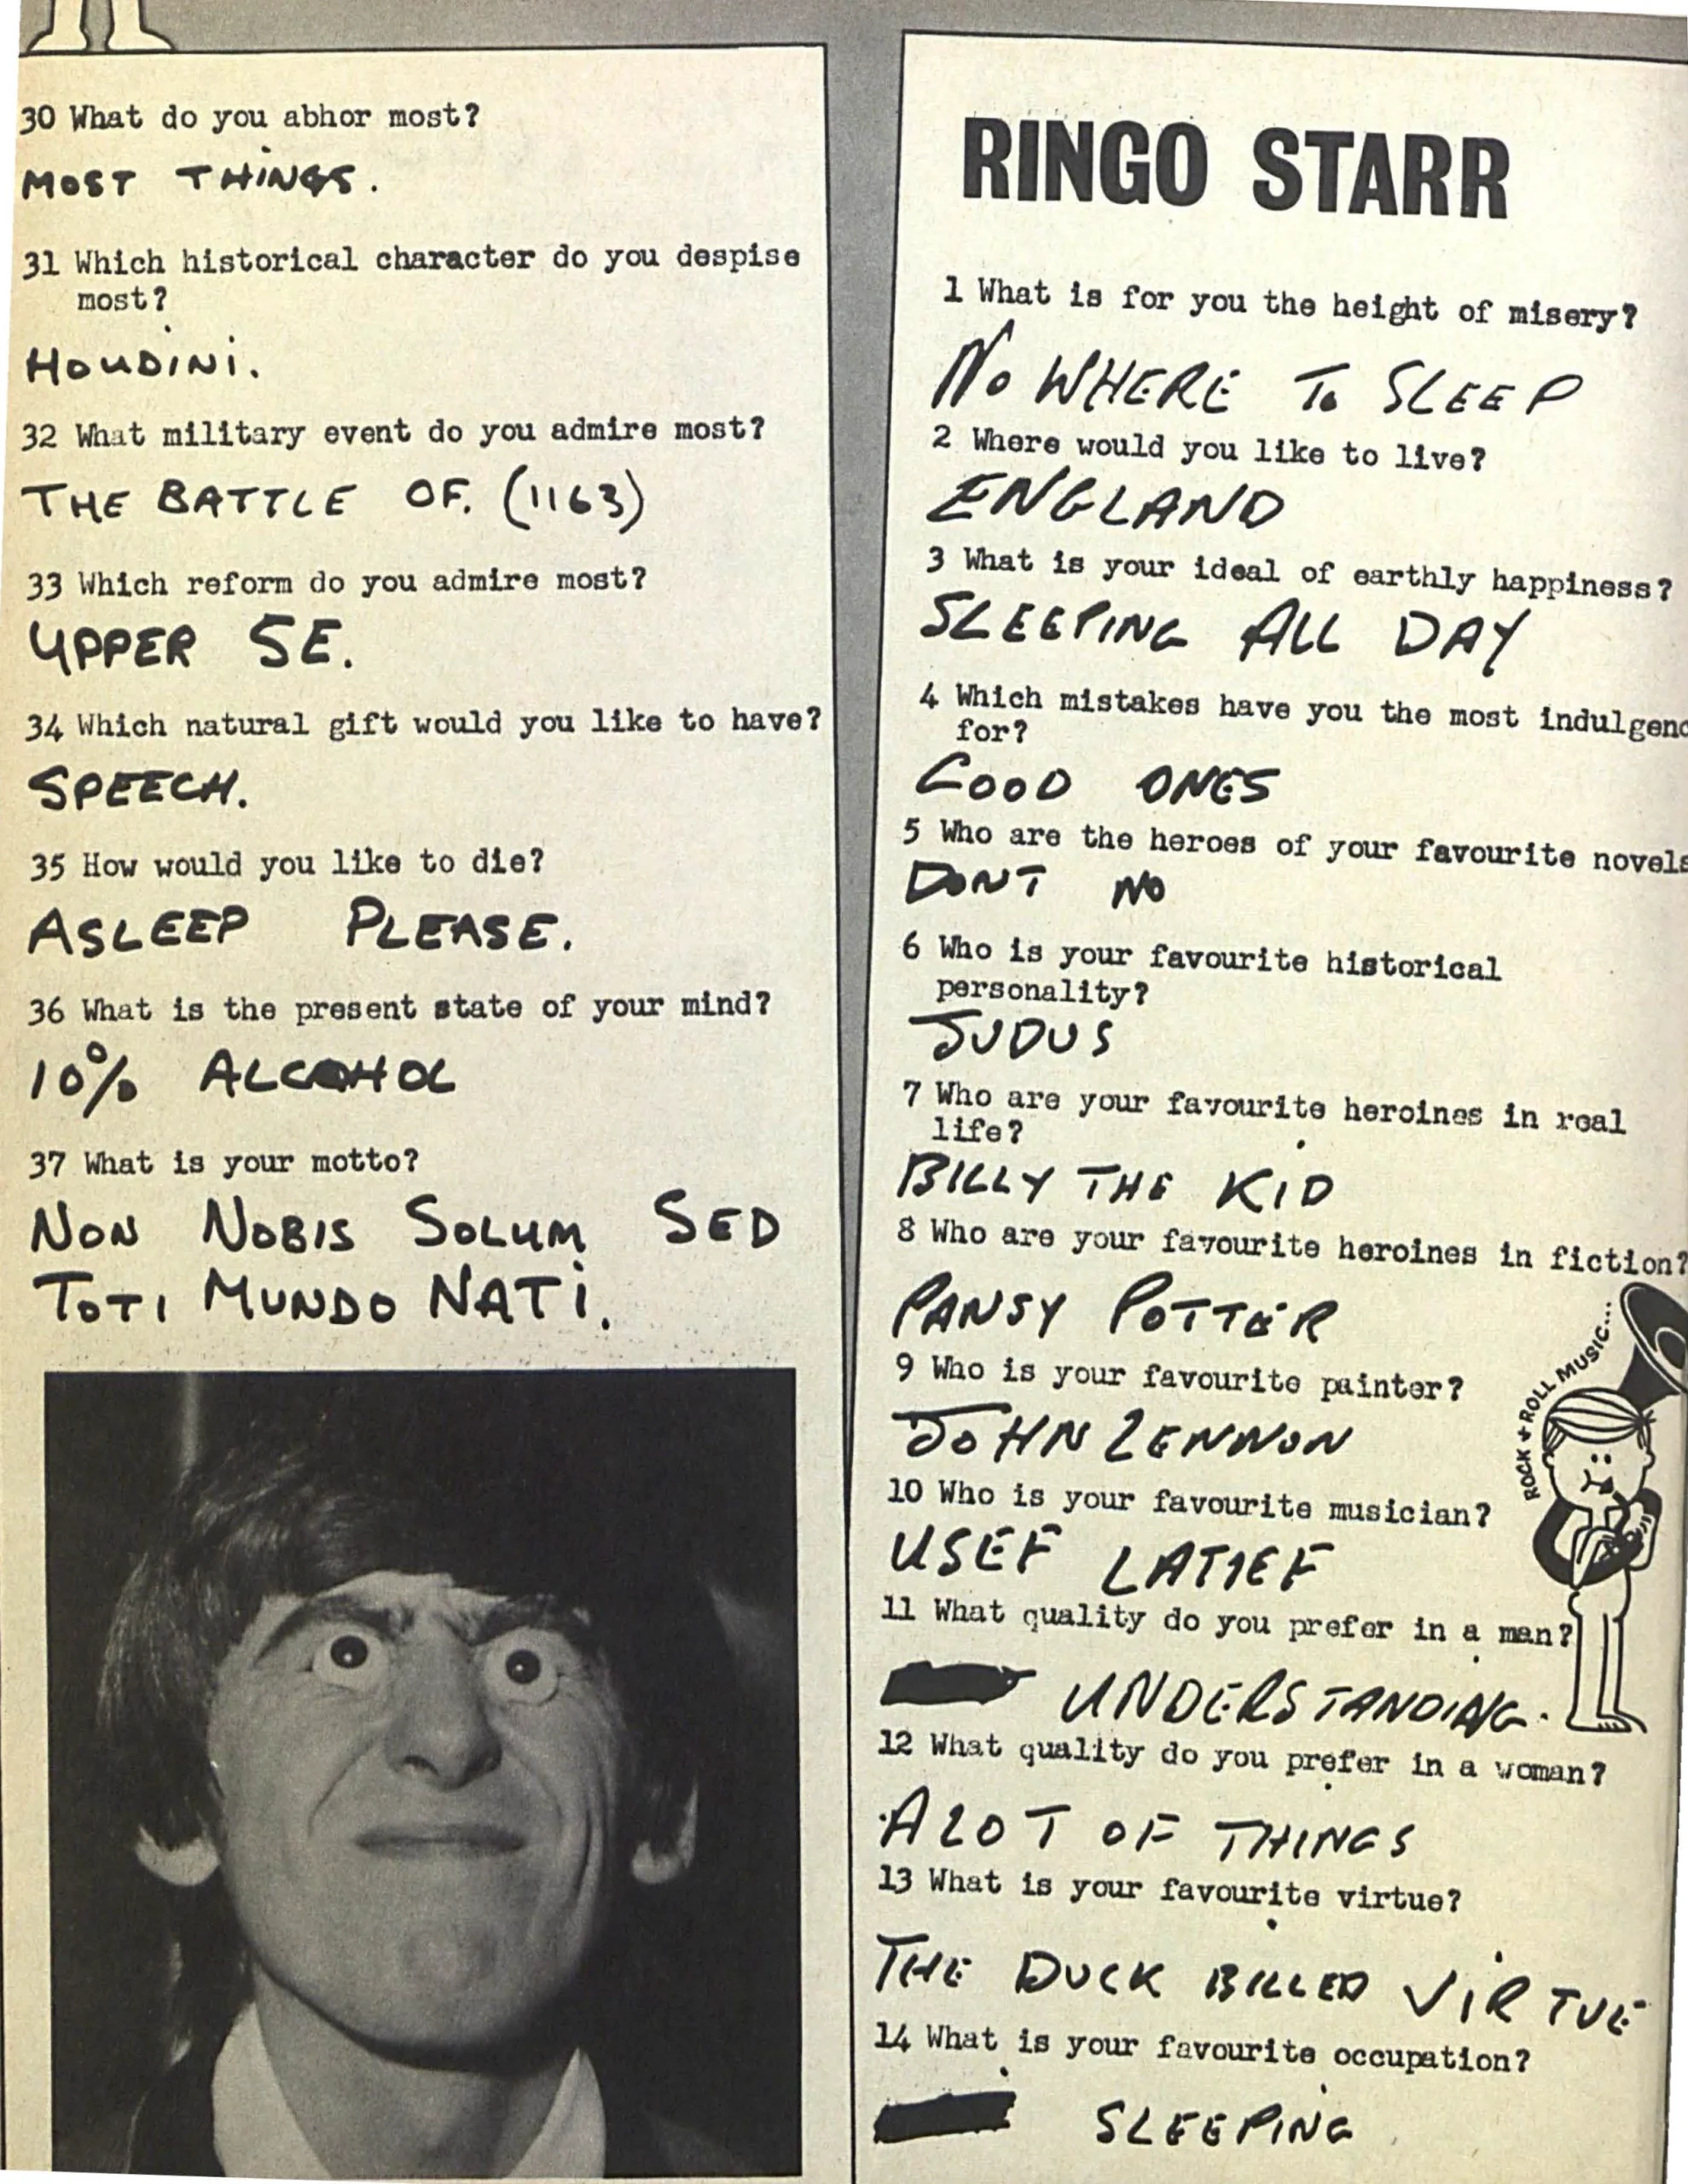 30 What do you abhor most?
MOST THINGS.
31 Which historical character do you despise
most?
HOUDINI.
32 What military event do you admire most?
THE BATTLE OF. (1163)
33 Which reform do you admire most?
UPPER SE.
34 Which natural gift would you like to have?
SPEECH.
35 How would you like to die?
ASLEEP PLEASE.
36 What is the present state of your mind?
10% ALCOHOL
37 What is your motto?
NON NOBIS SOLUM SED
TOTI MUNDO NATI.
RINGO STARR
1 What is for you the height of misery?
NO WHERE TO SLEEP
2 Where would you like to live?
ENGLAND
3 What is your ideal of earthly happiness?
SLEEPING ALL DAY
4 Which mistakes have you the most indulgenc
for?
GOOD ONES
5 Who are the heroes of your favourite novels
DONT NO
6 Who is your favourite historical
personality?
JUDUS
7 Who are your favourite heroines in real
life?
BILLY THE KID
8 Who are your favourite heroines in fiction?
PANSY POTTER
9 Who is your favourite painter?
JOHN LENNON
ROCK + ROLL MUSIC...
10 Who is your favourite musician?
USEF LATIEF
11 What quality do you prefer in a man?
UNDERSTANDING.
12 What quality do you prefer in a woman?
A LOT OF THINGS
13 What is your favourite virtue?
THE DUCK BILLED VIRTUE
14 What is your favourite occupation?
SLEEPING